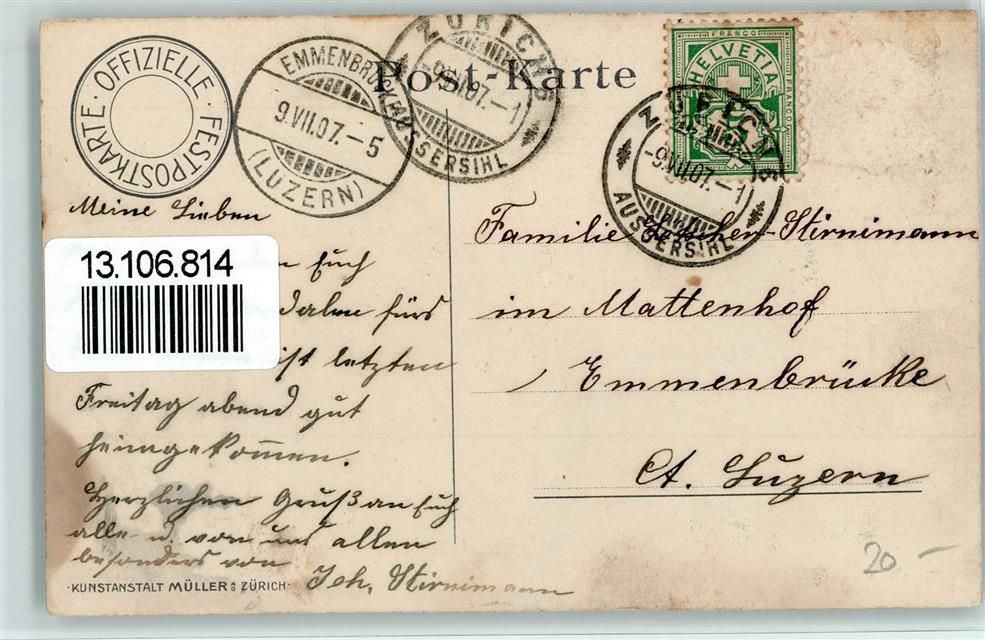 OFFIZIELLE · FESTPOSTKARTE ·
EMMENBRÜCKE
9.VII.07.–5
(LUZERN)
ZÜRICH
-9.VII.07.–1
AUSSERSIHL
Post-Karte
FRANCO
HELVETIA
FRANCO
ZÜRICH
-9.VII.07.–1
AUSSERSIHL
Meine Lieben
13.106.814
Euch
fürs
ist letzten
Freitag abend gut
heimgekommen.
Herzlichen Gruß an Euch
alle u. von uns allen
besonders von
Joh. Stirnimann
Familie -Stirnimann
im Mattenhof
Emmenbrücke
Ct. Luzern
·KUNSTANSTALT MÜLLER & ZÜRICH·
20 –